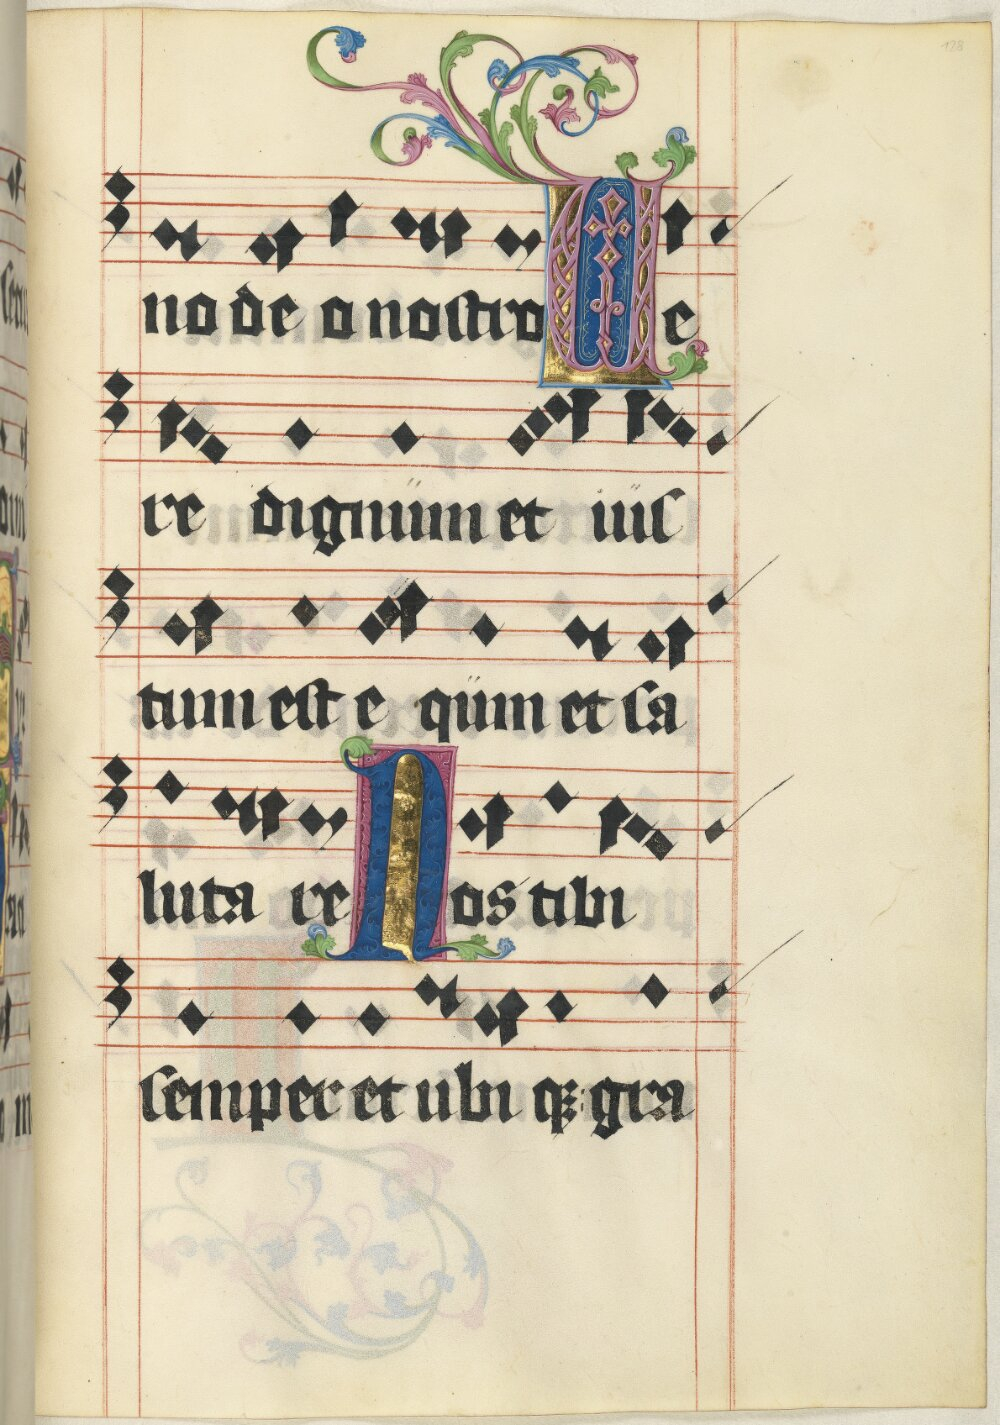 128
no de o nostro Ue
re dignum et ius
tum est e quum et sa
luta re Nos tibi
semper et ubi qꝫ gra